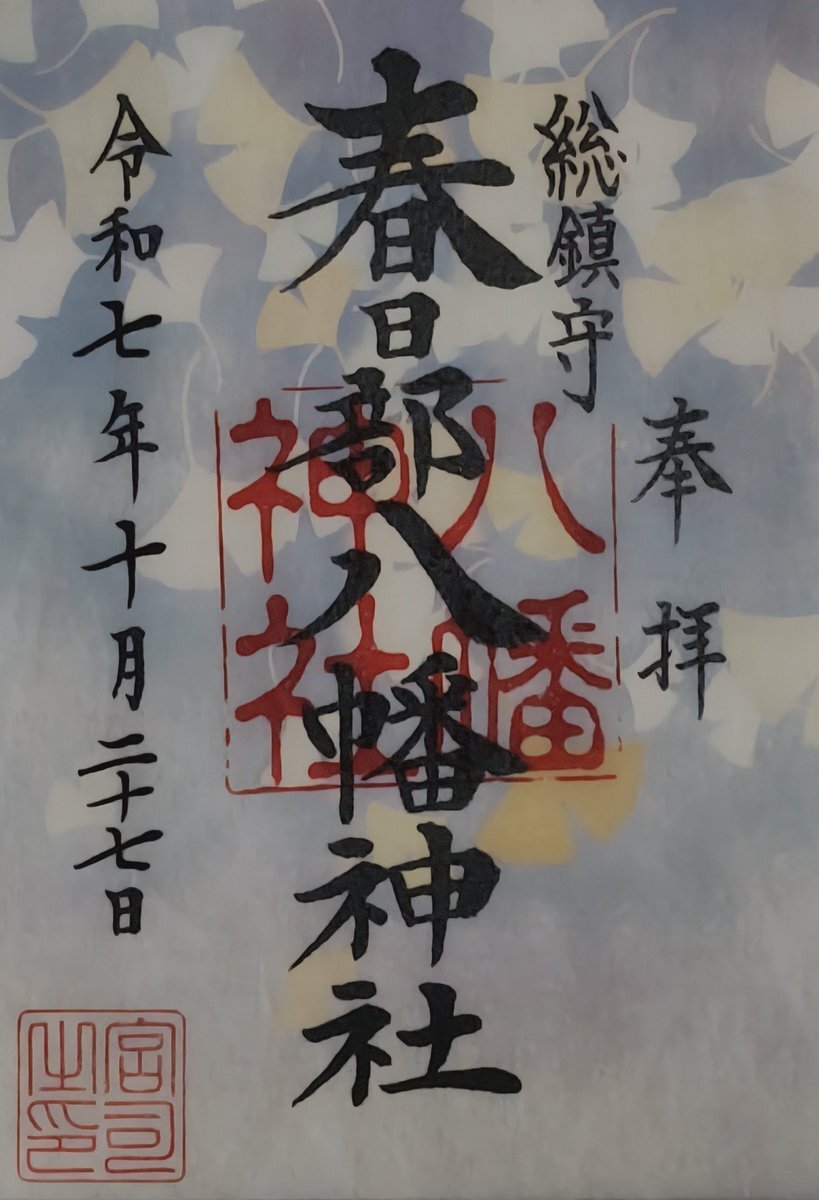 奉拝
総鎮守
春日部八幡神社
八幡神社
令和七年十月二十七日
宮司之印